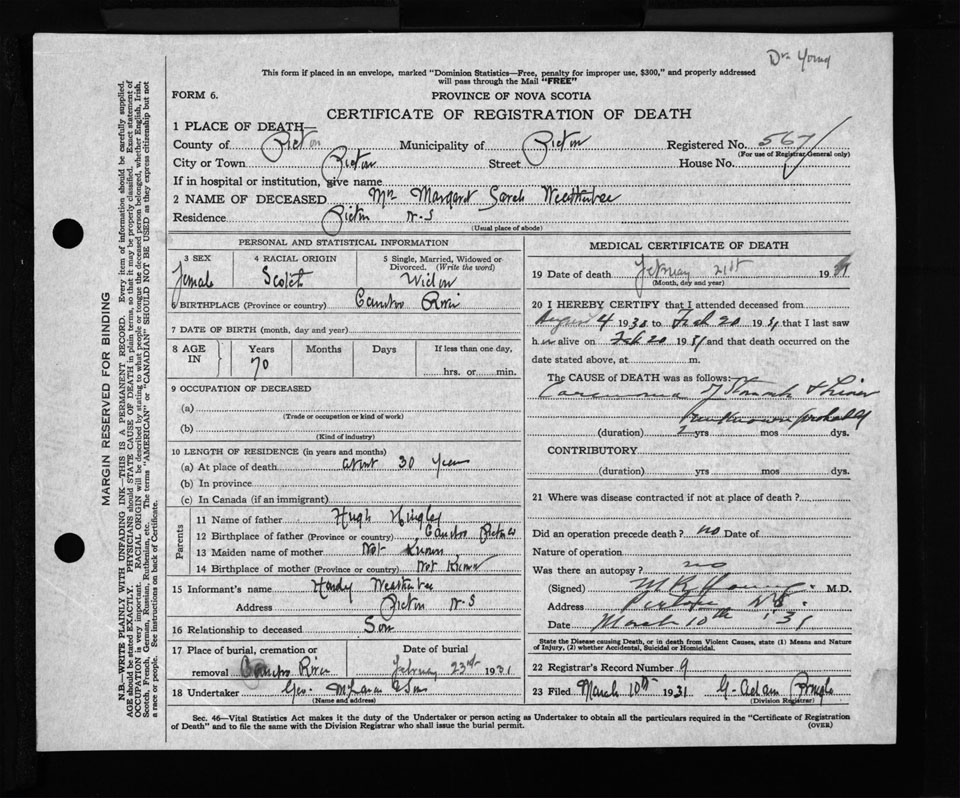 Dr. Young
This form if placed in an envelope, marked "Dominion Statistics—Free, penalty for improper use, $300," and properly addressed
will pass through the Mail "FREE"
FORM 6.
PROVINCE OF NOVA SCOTIA
CERTIFICATE OF REGISTRATION OF DEATH
1 PLACE OF DEATH—
County of Pictou Municipality of Pictou Registered No. 567
(For use of Registrar General only)
City or Town Pictou Street House No.
If in hospital or institution, give name
2 NAME OF DECEASED Mrs Margaret Sarah
Residence Pictou N-S
(Usual place of abode)
PERSONAL AND STATISTICAL INFORMATION
3 SEX
Female
4 RACIAL ORIGIN
Scotch
5 Single, Married, Widowed or
Divorced. (Write the word)
Widow
6 BIRTHPLACE (Province or country) River
7 DATE OF BIRTH (month, day and year)
8 AGE
IN
Years
70
Months
Days
If less than one day,
hrs. or min.
9 OCCUPATION OF DECEASED
(a)
(Trade or occupation or kind of work)
(b)
(Kind of industry)
10 LENGTH OF RESIDENCE (in years and months)
(a) At place of death about 30 years
(b) In province
(c) In Canada (if an immigrant)
Parents
11 Name of father Hugh
12 Birthplace of father (Province or country)
13 Maiden name of mother Not Known
14 Birthplace of mother (Province or country) Not Known
15 Informant's name Hardy
Address Pictou N-S
16 Relationship to deceased Son
17 Place of burial, cremation or
removal River
Date of burial
February 23rd 1931
18 Undertaker Geo. & Sons
(Name and address)
MEDICAL CERTIFICATE OF DEATH
19 Date of death February 21st 19
(Month, day and year)
20 I HEREBY CERTIFY that I attended deceased from
August 4 1930 to Feb 20 1931 that I last saw
her alive on Feb 20 1931 and that death occurred on the
date stated above, at m.
The CAUSE of DEATH was as follows:
Carcinoma of Stomach & Liver
unknown probably
(duration) 2 yrs mos dys.
CONTRIBUTORY
(duration) yrs mos dys.
21 Where was disease contracted if not at place of death?
Did an operation precede death? no Date of
Nature of operation
Was there an autopsy? no
(Signed) Young M.D.
Address Pictou N.S.
Date March 10th 1931
State the Disease causing Death, or in death from Violent Causes, state (1) Means and Nature
of Injury, (2) whether Accidental, Suicidal or Homicidal.
22 Registrar's Record Number 9
23 Filed March 10th 1931 G. Adam
(Division Registrar)
Sec. 46—Vital Statistics Act makes it the duty of the Undertaker or person acting as Undertaker to obtain all the particulars required in the "Certificate of Registration
of Death" and to file the same with the Division Registrar who shall issue the burial permit.
(OVER)
MARGIN RESERVED FOR BINDING
N.B.—WRITE PLAINLY WITH UNFADING INK—THIS IS A PERMANENT RECORD. Every item of information should be carefully supplied.
AGE should be stated EXACTLY. PHYSICIANS should STATE CAUSE OF DEATH in plain terms, so that it may be properly classified. Exact statement of
OCCUPATION is very important. RACIAL ORIGIN will be described by stating to what people or tongue the deceased person belonged, whether English, Irish,
Scotch, French, German, Russian, Ruthenian, etc. The terms "AMERICAN" or "CANADIAN" SHOULD NOT BE USED as they express citizenship but not
a race or people. See instructions on back of Certificate.